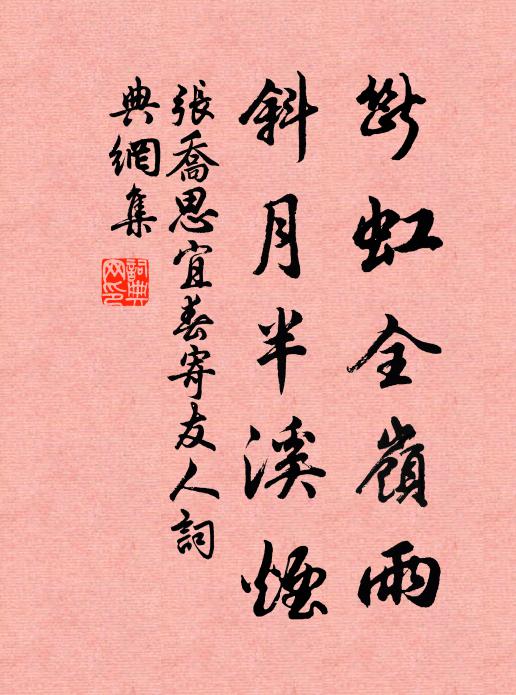 斷虹全嶺雨
斜月半溪煙
張喬思宜春寄友人詞
典網集
詞典
网印